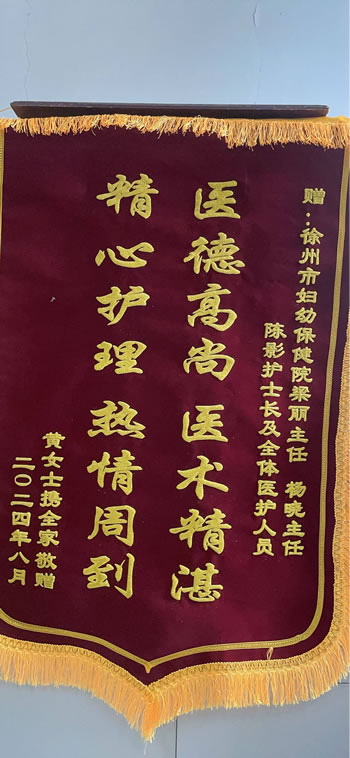 赠：徐州市妇幼保健院梁丽主任 杨晓主任
陈影护士长及全体医护人员
医德高尚 医术精湛
精心护理 热情周到
黄女士携全家敬赠
二〇二四年八月